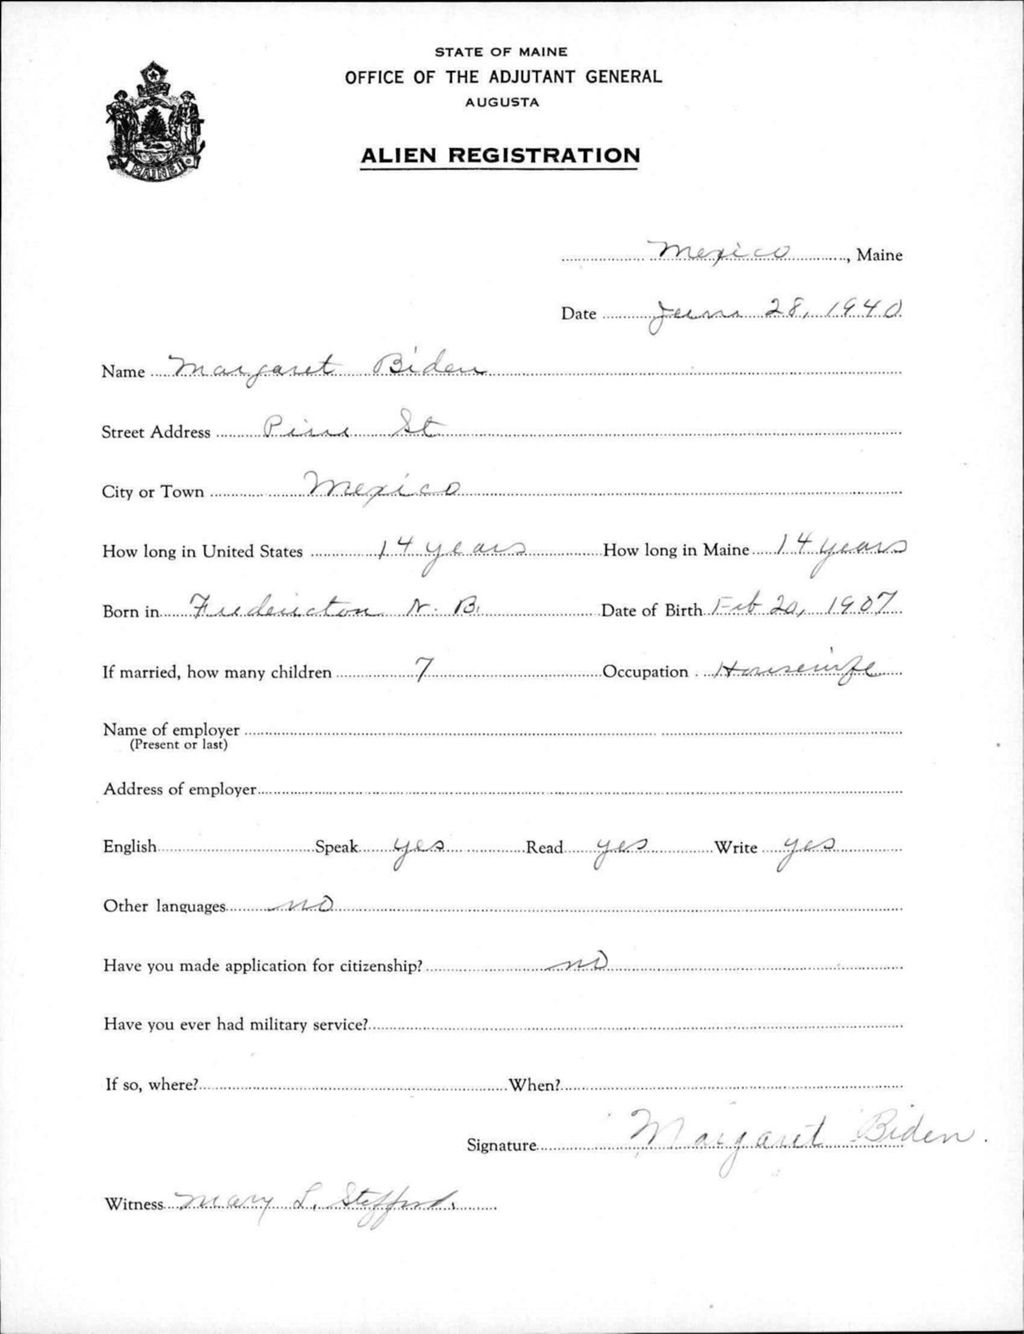 STATE OF MAINE
OFFICE OF THE ADJUTANT GENERAL
AUGUSTA
ALIEN REGISTRATION
MAINE
Mexico, Maine
Date June 28, 1940
Name Margaret Biden
Street Address Pine St
City or Town Mexico
How long in United States 14 years How long in Maine 14 years
Born in Fredericton N. B. Date of Birth Feb 20, 1907
If married, how many children 7 Occupation Housewife
Name of employer
(Present or last)
Address of employer
English Speak yes Read yes Write yes
Other languages no
Have you made application for citizenship? no
Have you ever had military service?
If so, where? When?
Signature Margaret Biden.
Witness Mary L.